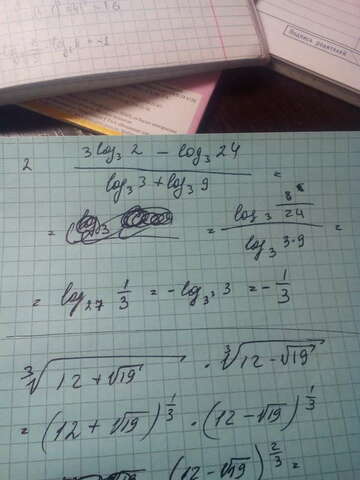 Подпись родителей
2 (3 log₃ 2 − log₃ 24) / (log₃ 3 + log₃ 9) =
= = (log₃ 8/24) / (log₃ 3·9) =
= log₂₇ 1/3 = − log₃³ 3 = − 1/3
∛(12 + √19) · ∛(12 − √19)
= (12 + √19)^(1/3) · (12 − √19)^(1/3)
(12 − √19)^(2/3) =